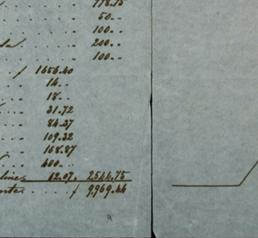 778.15
50..
100..
200..
100..
f 1656.40
14..
18..
31.72
84.27
109.32
168.87
400..
62.07. 2544.75
f 9,969.44